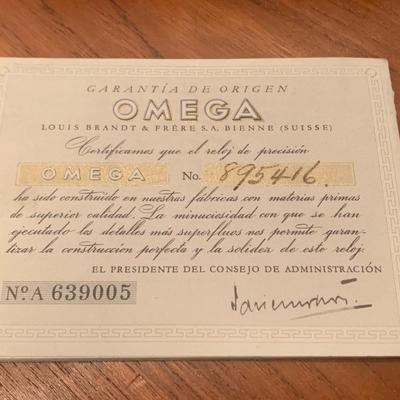 GARANTÍA DE ORIGEN
OMEGA
LOUIS BRANDT & FRÈRE S.A. BIENNE (SUISSE)
Certificamos que el reloj de precisión
OMEGA No. 895416.
ha sido construido en nuestras fábricas con materias primas
de superior calidad. La minuciosidad con que se han
ejecutado los detalles más superfluos nos permite garan-
tizar la construcción perfecta y la solidez de este reloj.
EL PRESIDENTE DEL CONSEJO DE ADMINISTRACIÓN
No. A 639005